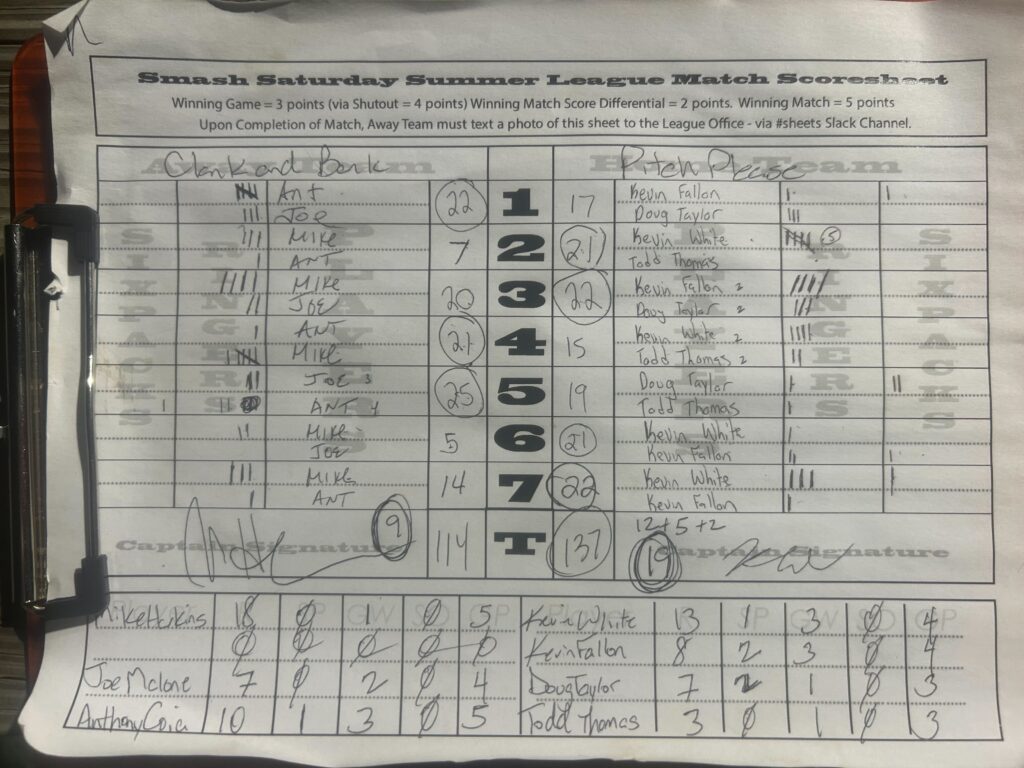 Smash Saturday Summer League Match Scoresheet
Winning Game = 3 points (via Shutout = 4 points) Winning Match Score Differential = 2 points. Winning Match = 5 points
Upon Completion of Match, Away Team must text a photo of this sheet to the League Office - via #sheets Slack Channel.
Away Team Home Team
Clank and Bank Pitch Please
ANT 22 1 17 Kevin Fallon
JOE Doug Taylor
MIKE 7 2 21 Kevin White 5
ANT Todd Thomas
MIKE 20 3 22 Kevin Fallon 2
JOE Doug Taylor 2
ANT 21 4 15 Kevin White 2
MIKE Todd Thomas 2
JOE 3 25 5 19 Doug Taylor
ANT 4 Todd Thomas
MIKE 5 6 21 Kevin White
JOE Kevin Fallon
MIKE 14 7 22 Kevin White
ANT Kevin Fallon
SIXPACKS RINGERS PLAYERS PLAYERS RINGERS SIXPACKS
12+5+2
Captain Signature 9 114 T 137 19 Captain Signature
Player R SP GW SO GP Player R SP GW SO GP
18 0 1 0 5 Kevin White 13 1 3 0 4
0 0 0 0 0 Kevin Fallon 8 2 3 0 4
Joe Malone 7 0 2 0 4 Doug Taylor 7 2 1 0 3
Anthony 10 1 3 0 5 Todd Thomas 3 0 1 0 3